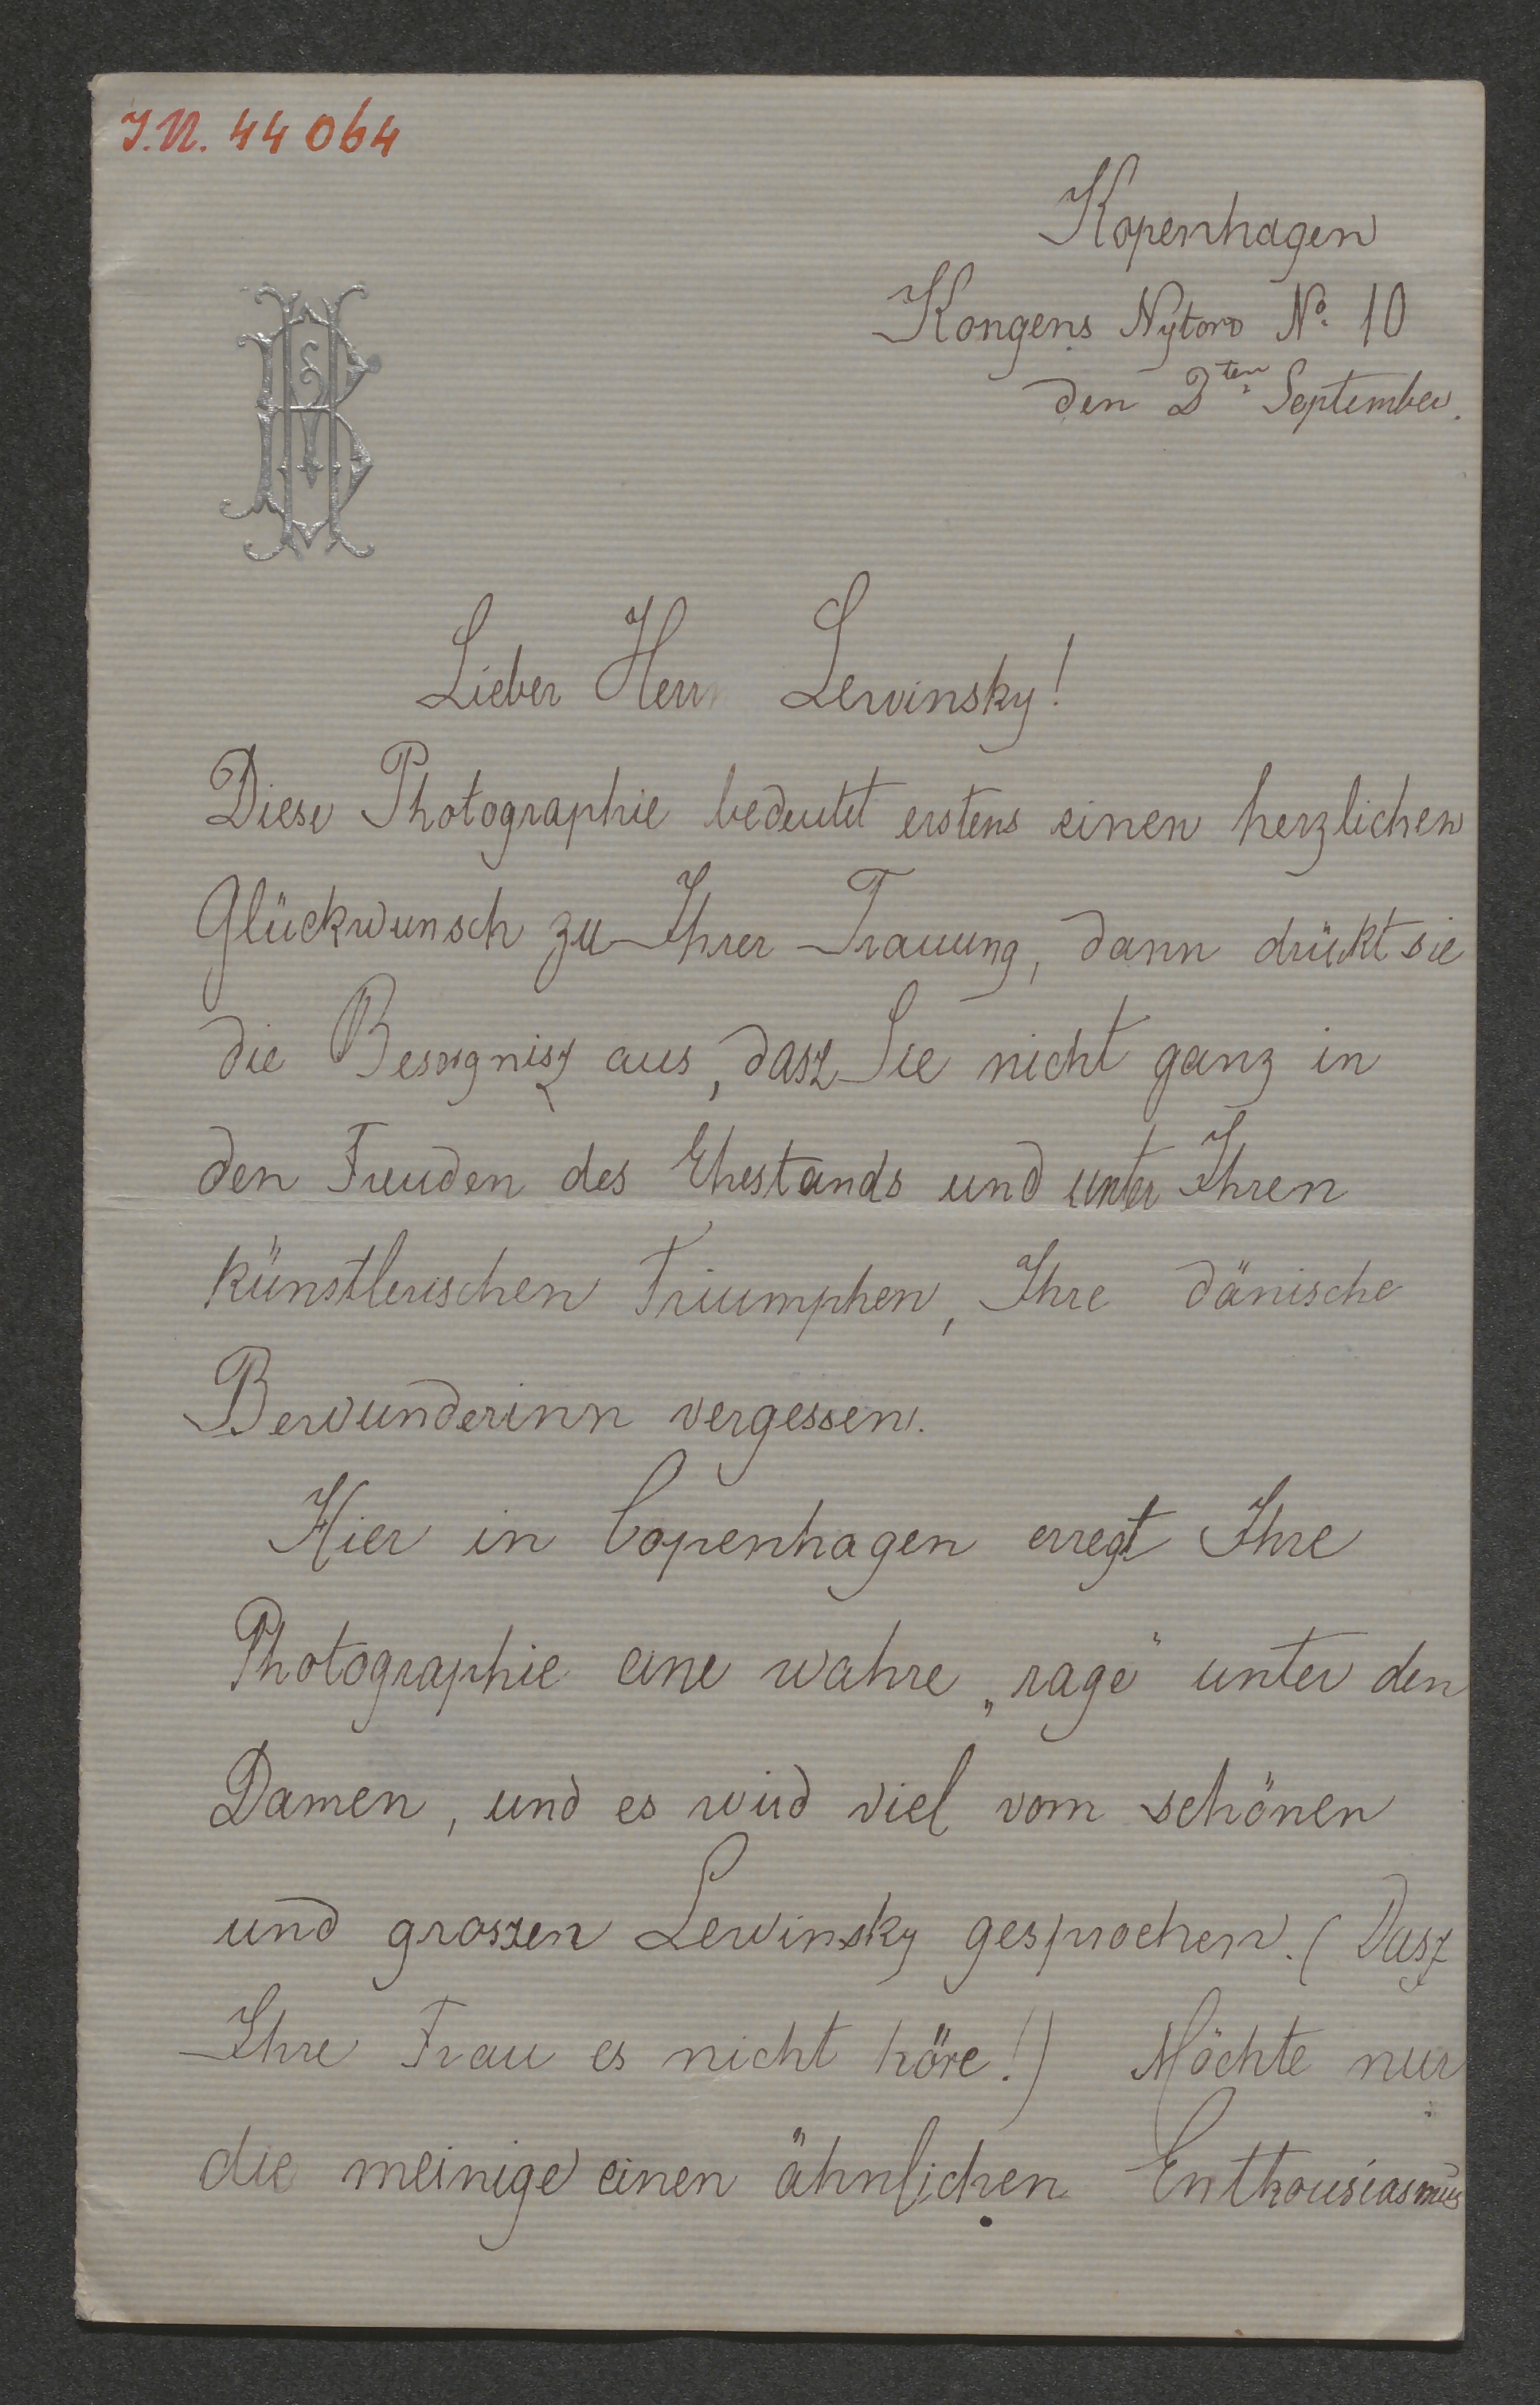 J.N. 44 064
Kopenhagen
Kongens Nytorv No. 10
den 2ten September.
Lieber Herr Lewinsky!
Diese Photographie bedeutet erstens einen herzlichen
Glückwunsch zu Ihrer Trauung, dann drückt sie
die Besorgnisz aus, dasz Sie nicht ganz in
den Freuden des Ehestands und unter Ihren
künstlerischen Triumphen, Ihre dänische
Bewunderinn vergessen.
Hier in Copenhagen erregt Ihre
Photographie eine wahre „rage" unter den
Damen, und es wird viel vom schönen
und groszen Lewinsky gesprochen. (Dasz
Ihre Frau es nicht höre!) Möchte nur
die meinige einen ähnlichen Enthousiasmus